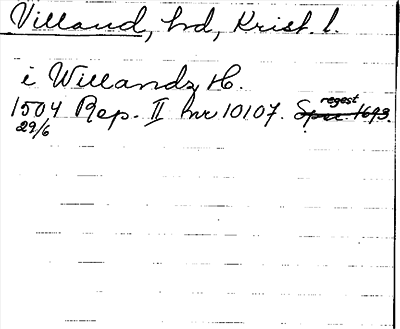 Villand, hd, Krist. l.
i Willandz H.
1504 Rep. II nr 10107. regest
29/6